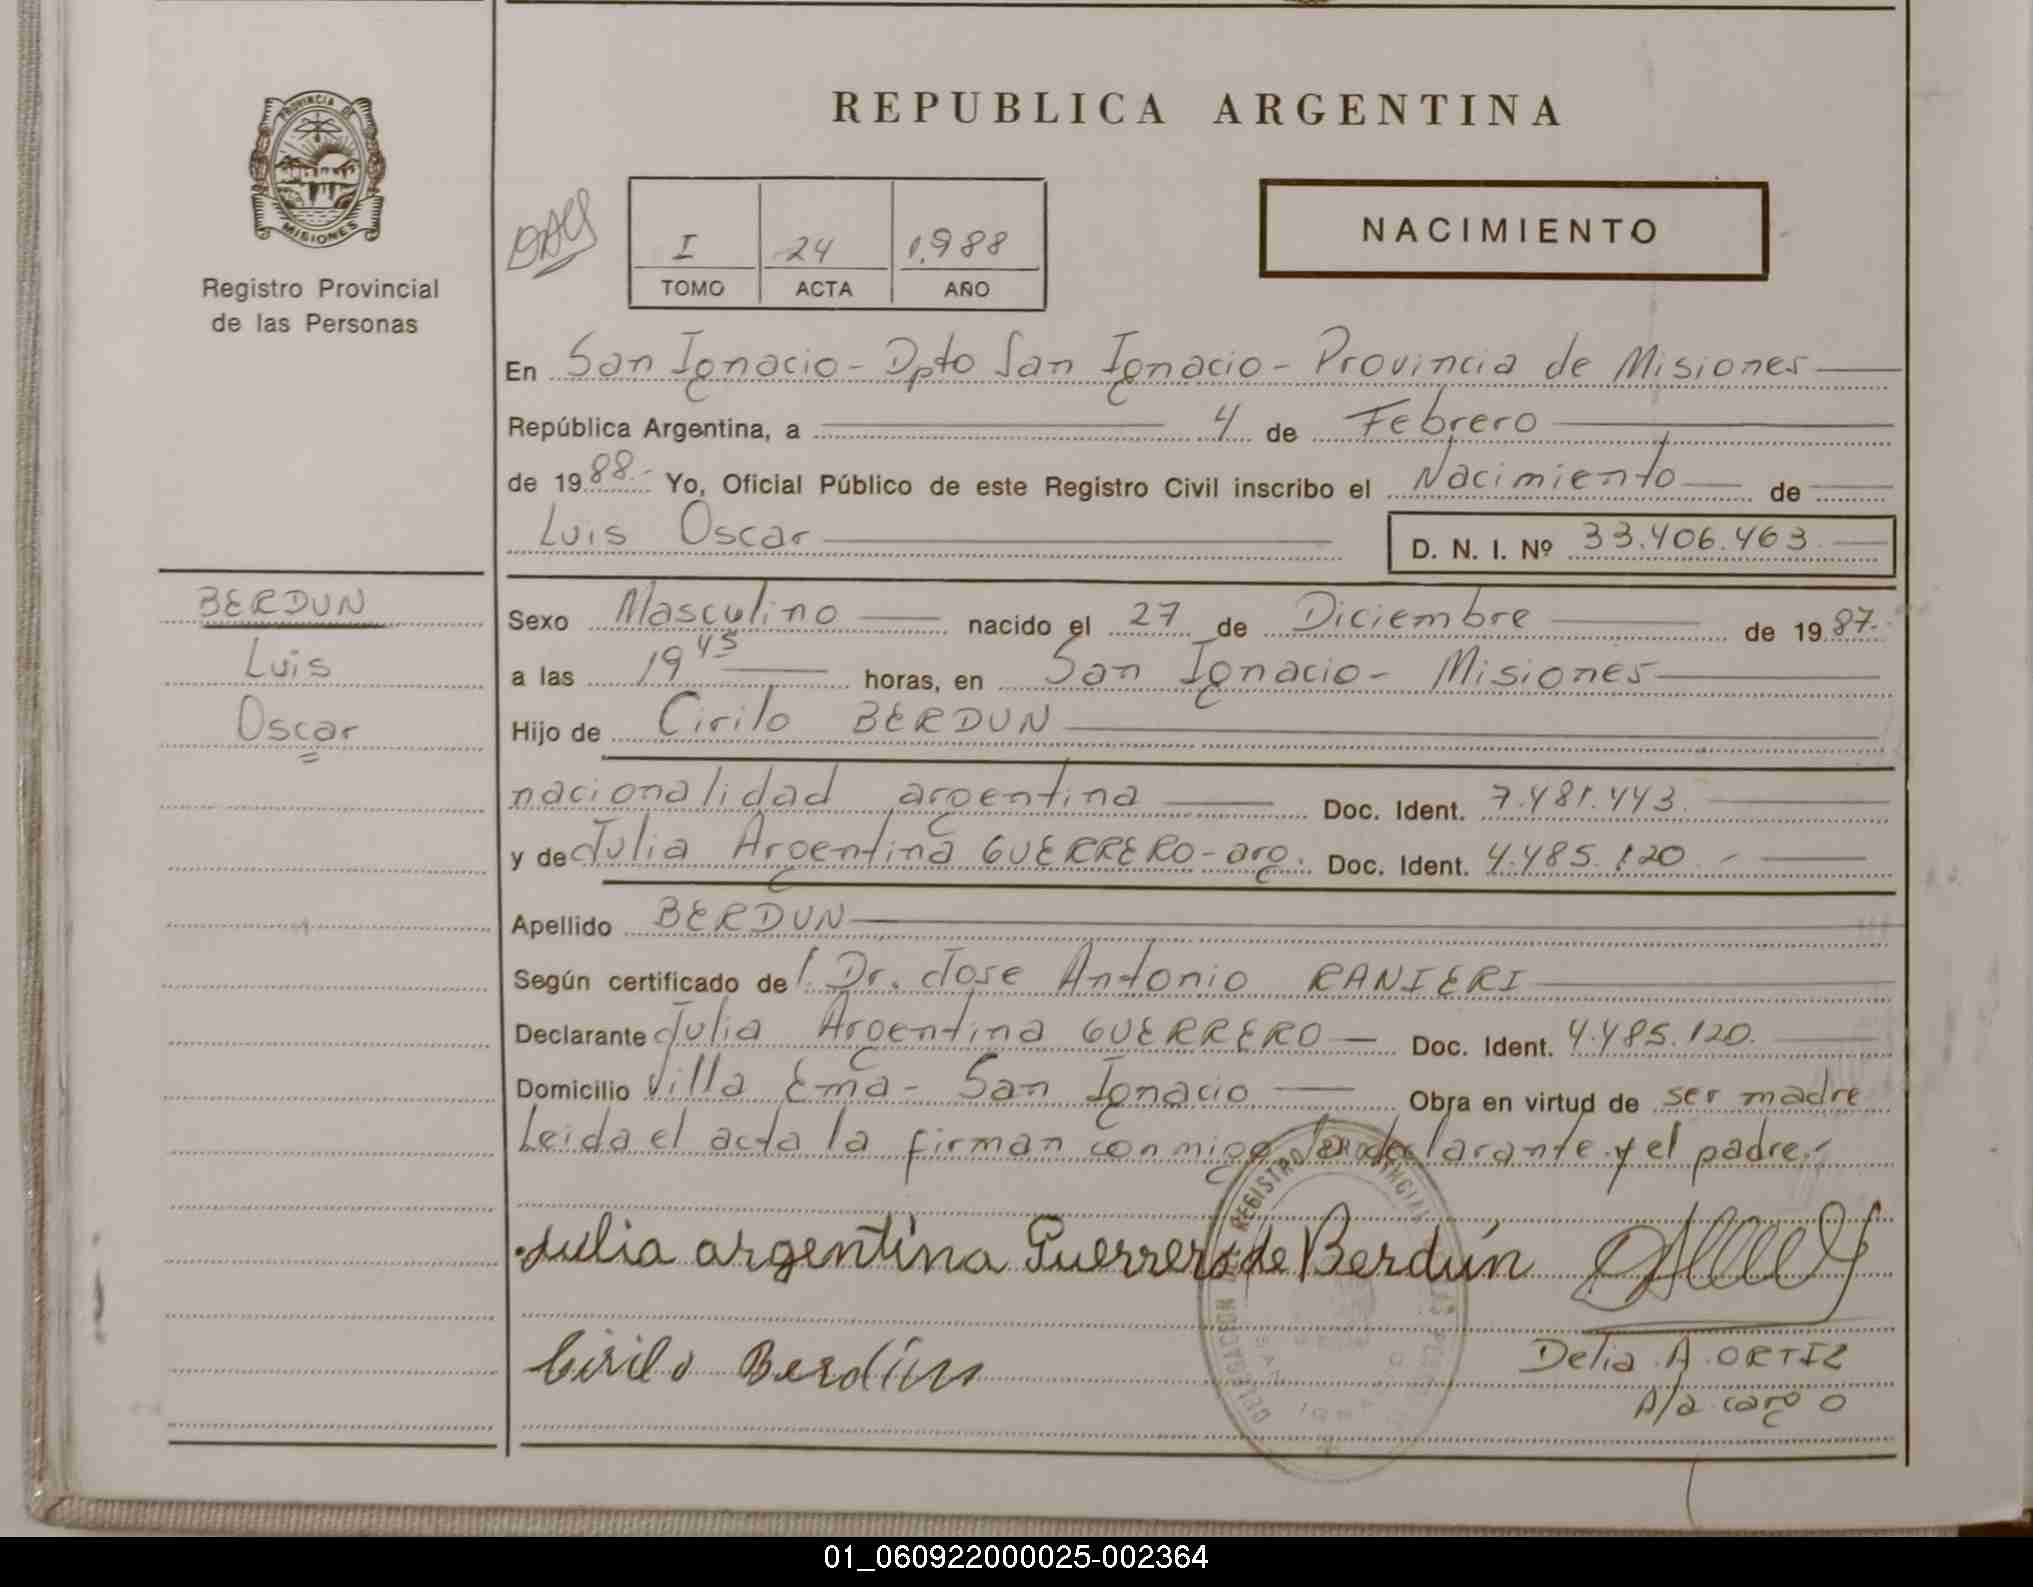 REPUBLICA ARGENTINA
PROVINCIA DE
MISIONES
Registro Provincial
de las Personas
I 24 1.988
TOMO ACTA AÑO
NACIMIENTO
En San Ignacio - Dpto San Ignacio - Provincia de Misiones
República Argentina, a 4 de Febrero
de 1988.- Yo, Oficial Público de este Registro Civil inscribo el Nacimiento de
Luis Oscar D. N. I. Nº 33.406.463
BERDUN
Luis
Oscar
Sexo Masculino nacido el 27 de Diciembre de 1987.-
a las 19 45 horas, en San Ignacio - Misiones
Hijo de Cirilo BERDUN
nacionalidad argentina Doc. Ident. 7.481.443.
y de Julia Argentina GUERRERO - arg. Doc. Ident. 4.485.120.-
Apellido BERDUN
Según certificado de l. Dr. Jose Antonio RANIERI
Declarante Julia Argentina GUERRERO Doc. Ident. 4.485.120.
Domicilio Villa Ema - San Ignacio Obra en virtud de ser madre
Leida el acta la firman conmigo la declarante y el padre.-
Julia argentina Guerrero de Berdún
Cirilo Berdún
Delia A. ORTIZ
A/a cargo
REGISTRO PROVINCIAL
DELEGACION
01_060922000025-002364